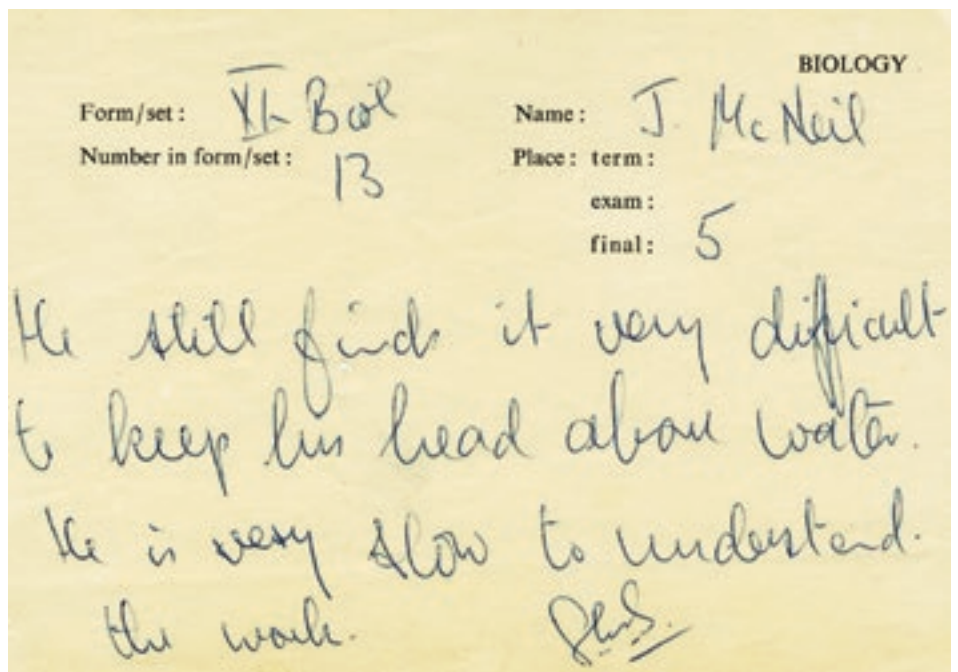 BIOLOGY
Form/set: Biol Name: J. McNeil
Number in form/set: 13 Place: term:
exam:
final: 5
He still finds it very difficult
to keep his head above water.
He is very slow to understand.
the work.